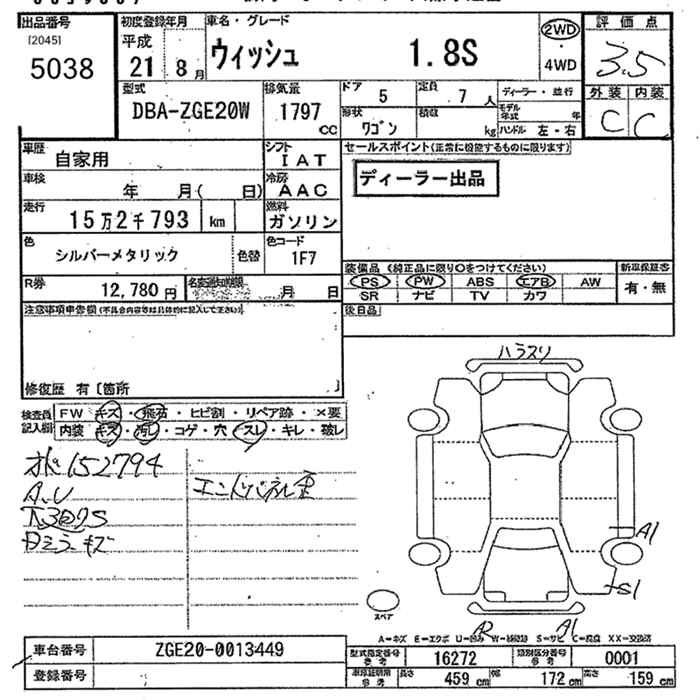 出品番号 初度登録年月 車名・グレード 評価点
[2045]
5038
平成
21年 8月
ウィッシュ 1.8S
2WD
・
4WD
3.5
外装 内装
C C
型式 排気量 ドア 定員 ディーラー・並行
DBA-ZGE20W 1797cc 5 7人
形状 積載 モデル年式 年
ワゴン kg ハンドル 左・右
車歴 自家用
シフト IAT
セールスポイント(正常に機能するものに限ります)
ディーラー出品
車検 年 月( 日)
冷房 AAC
走行 15万2千793 km
燃料 ガソリン
色 シルバーメタリック 色替
色コード 1F7
装備品(純正品に限り○をつけてください) 新車保証書
PS PW ABS エアB AW 有・無
SR ナビ TV カワ
R券 12,780円 名変通知期限 月 日
後日品
注意事項申告欄(不具合内容等は具体的に記入して下さい)
修復歴 有〔箇所 〕
検査員記入欄
FW キズ・飛石・ヒビ割・リペア跡・×要
内装 キズ・汚レ・コゲ・穴・スレ・キレ・破レ
152794
A.U
エンドパネル歪
Dミラーキズ
ハラスリ
A1
S1
スペア
A2 A1
A=キズ E=エクボ U=凹み W=補修跡 S=サビ C=腐食 XX=交換済
車台番号 ZGE20-0013449
登録番号
型式指定番号 参考 16272 類別区分番号 参考 0001
車庫証明用 参考 長さ 459 cm 幅 172 cm 高さ 159 cm